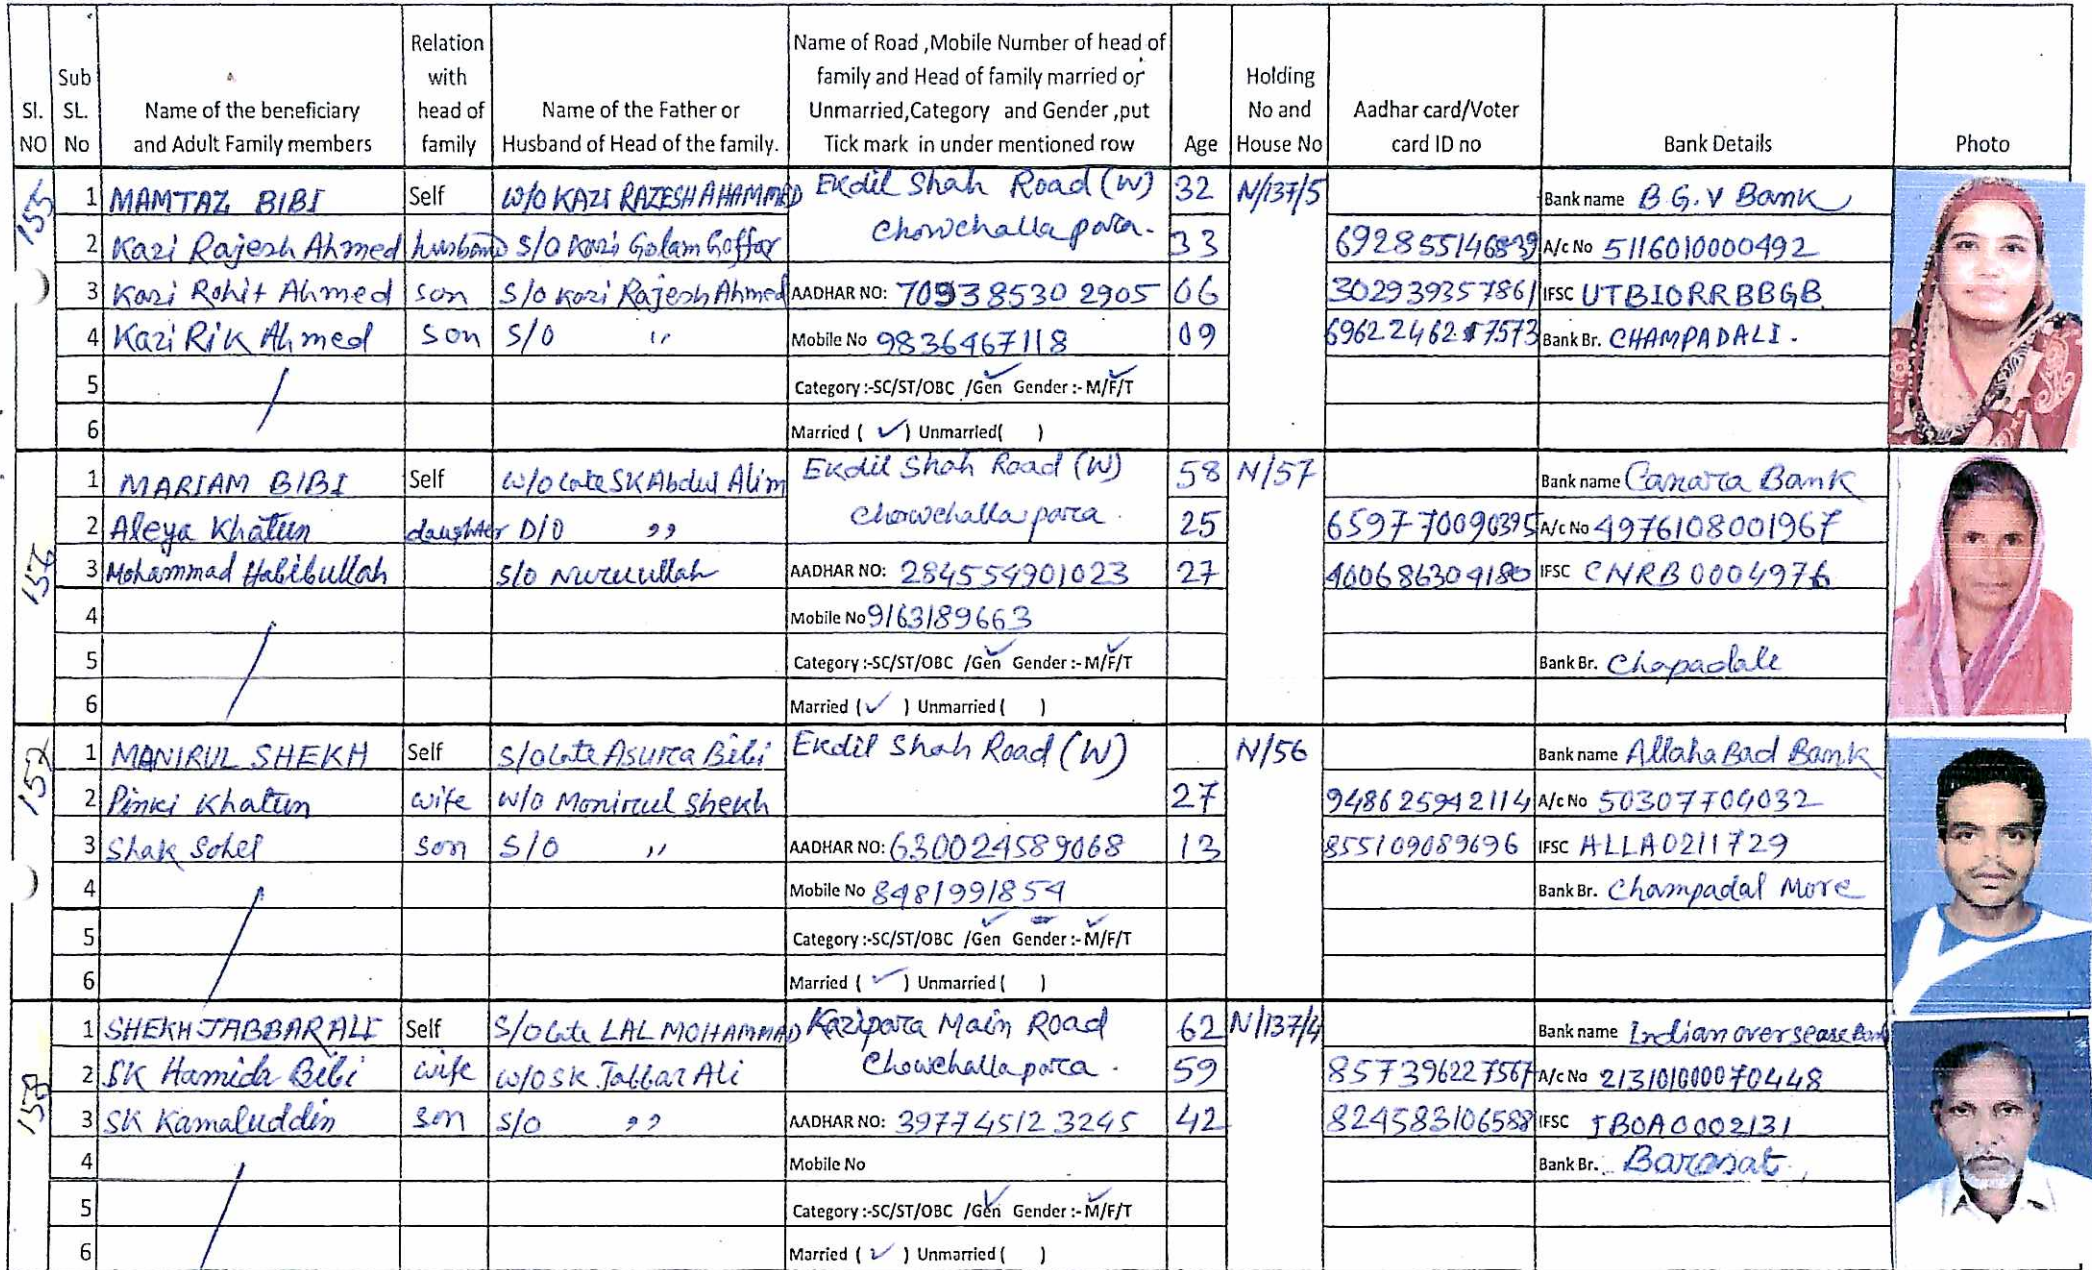 Sl. NO
Sub SL. No
Name of the beneficiary and Adult Family members
Relation with head of family
Name of the Father or Husband of Head of the family.
Name of Road ,Mobile Number of head of family and Head of family married or Unmarried,Category and Gender ,put Tick mark in under mentioned row
Age
Holding No and House No
Aadhar card/Voter card ID no
Bank Details
Photo
155
1 MAMTAZ BIBI Self W/O KAZI RAZESH AHAMMED Ekdil Shah Road (W) 32 N/137/5 Bank name B.G.V Bank
2 Kazi Rajesh Ahmed husband S/O Kazi Golam Goffar Chowchalla para. 33 692855146839 A/c No 5116010000492
3 Kazi Rohit Ahmed son S/O Kazi Rajesh Ahmed AADHAR NO: 709385302905 06 302939357861 IFSC UTBI0RRBBGB
4 Kazi Rik Ahmed son S/O ,, Mobile No 9836467118 09 Bank Br. CHAMPADALI.
5 Category :-SC/ST/OBC /Gen Gender :- M/F/T
6 Married ( ✓ ) Unmarried( )
156
1 MARIAM BIBI Self W/O Late SK Abdul Alim Ekdil Shah Road (W) 58 N/57 Bank name Canara Bank
2 Aleya Khatun daughter D/O ,, Chowchalla para. 25 659770090395 A/c No 4976108001967
3 Mohammad Habibullah S/O AADHAR NO: 284554901023 27 400686304180 IFSC CNRB0004976
4 Mobile No 9163189663
5 Category :-SC/ST/OBC /Gen Gender :- M/F/T Bank Br. Chapadale
6 Married ( ✓ ) Unmarried ( )
157
1 MANIRUL SHEKH Self S/O Late Asura Bibi Ekdil Shah Road (W) N/56 Bank name Allaha Bad Bank
2 Pinki Khatun wife W/O Monirul Shekh 27 948625942114 A/c No 50307704032
3 Shak Sohel son S/O ,, AADHAR NO: 630024589068 13 855109089696 IFSC ALLA0211729
4 Mobile No 8481991854 Bank Br. Champadal More
5 Category :-SC/ST/OBC /Gen Gender :- M/F/T
6 Married ( ✓ ) Unmarried ( )
158
1 SHEKH JABBAR ALI Self S/O Late LAL MOHAMMAD Kazipara Main Road 62 N/137/4 Bank name Indian oversease Bank
2 SK Hamida Bibi wife W/O SK Jabbar Ali Chowchalla para. 59 857396227567 A/c No 213101000070448
3 SK Kamaluddin son S/O ,, AADHAR NO: 397745123245 42 824583106588 IFSC IBOA0002131
4 Mobile No Bank Br. Barasat
5 Category :-SC/ST/OBC /Gen Gender :- M/F/T
6 Married ( ✓ ) Unmarried ( )